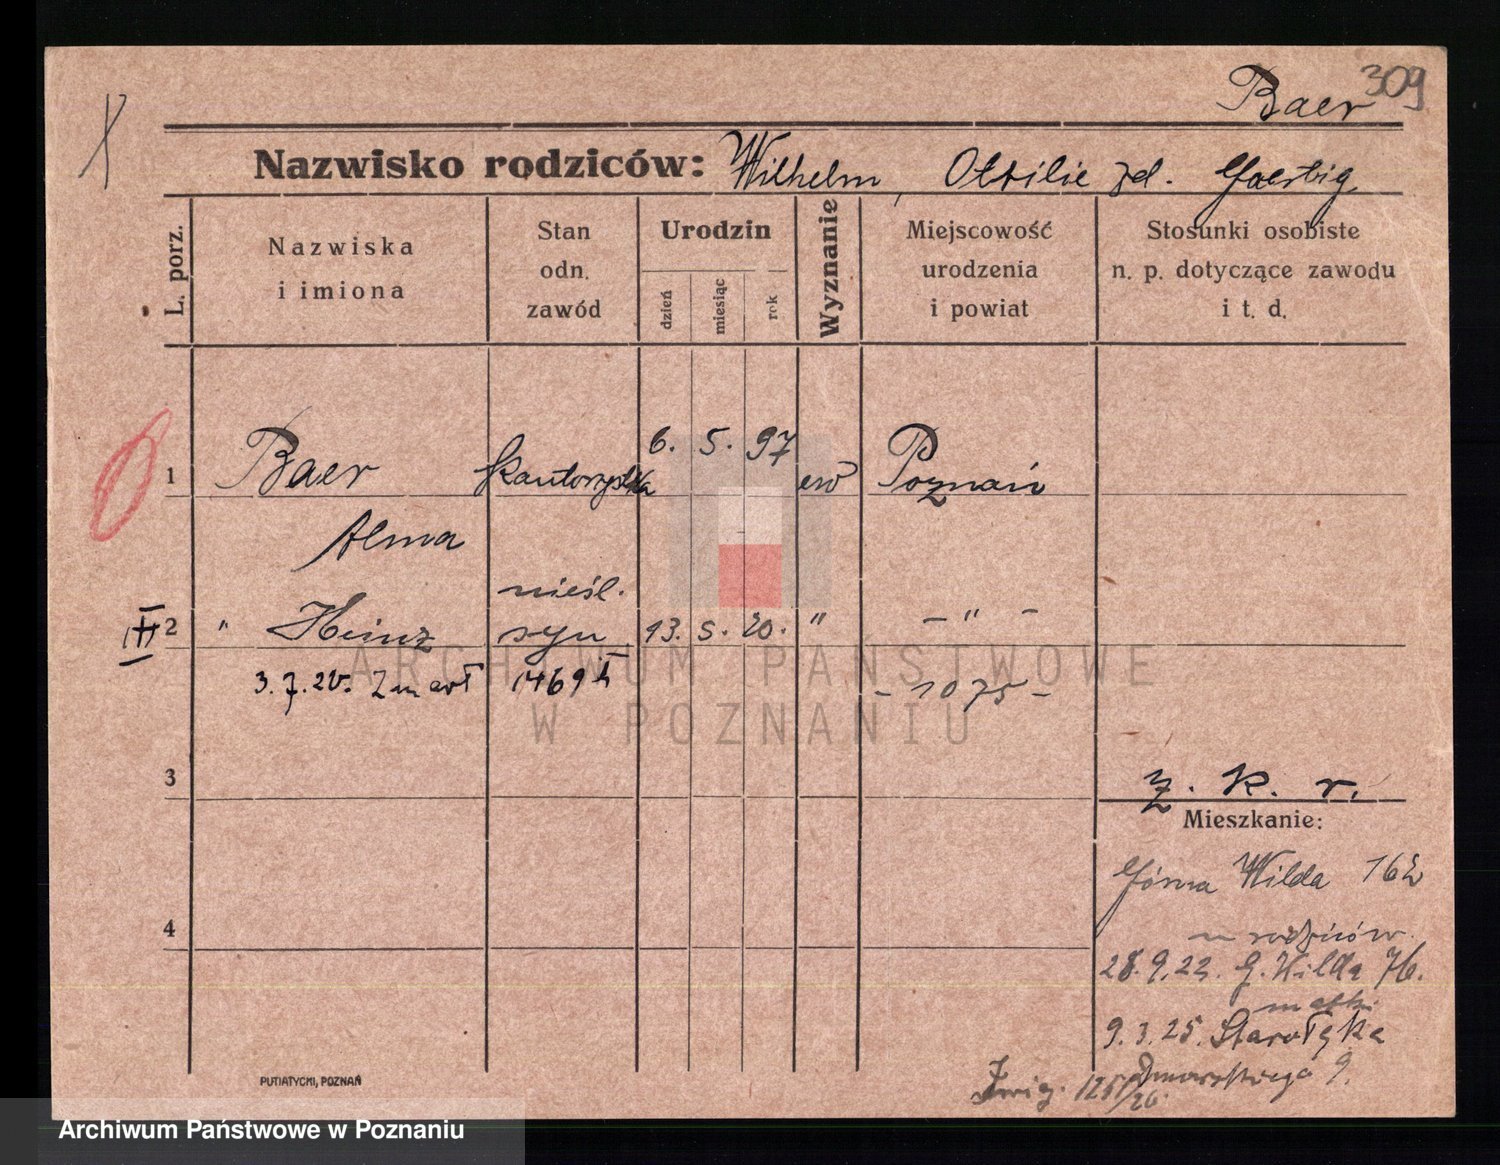 309
Baer
Nazwisko rodziców: Wilhelm, Ottilie zd. Gaertig
L. porz.
Nazwiska
i imiona
Stan
odn.
zawód
Urodzin
dzień
miesiąc
rok
Wyznanie
Miejscowość
urodzenia
i powiat
Stosunki osobiste
n. p. dotyczące zawodu
i t. d.
1 Baer kantorzystka 6. 5. 97 ew Poznań
Alma
nieśl.
III 2 " Heinz syn 13. 5. 20. " - " -
3.7.20. Zmarł 1469 - 1075 -
ARCHIWUM PAŃSTWOWE
W POZNANIU
3
z. k. r.
Mieszkanie:
Górna Wilda 162
4
u rodziców
28.9.22. G. Wilda 76.
matki
9.3.25. Starołęka
9.
/26.
PUTIATYCKI, POZNAŃ
Archiwum Państwowe w Poznaniu